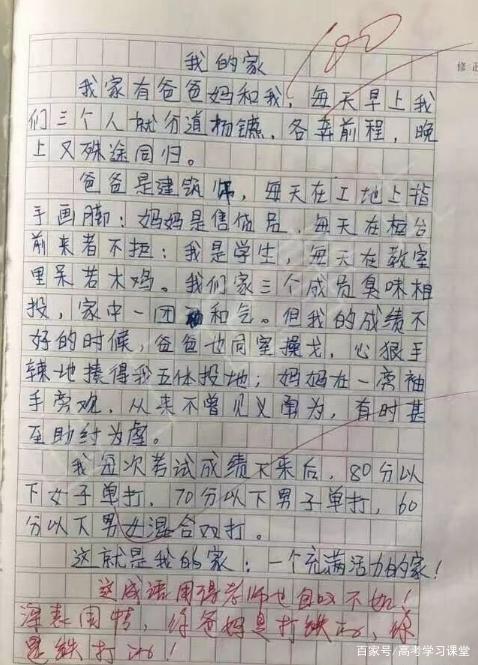 100
修正
我的家
我家有爸爸妈和我，每天早上我
们三个人就分道扬镳，各奔前程，晚
上又殊途同归。
爸爸是建筑师，每天在工地上指
手画脚；妈妈是售货员，每天在柜台
前来者不拒；我是学生，每天在教室
里呆若木鸡。我们家三个成员臭味相
投，家中一团和气。但我的成绩不
好的时候，爸爸也同室操戈，心狠手
辣地揍得我五体投地；妈妈在一旁袖
手旁观，从来不曾见义勇为，有时甚
至助纣为虐。
我每次考试成绩下来后，80分以
下女子单打，70分以下男子单打，60
分以下男女混合双打。
这就是我的家：一个充满活力的家！
这成语用得老师也自叹不如！
深表同情，你爸妈是打铁的，你
是铁打的！
百家号/高考学习课堂